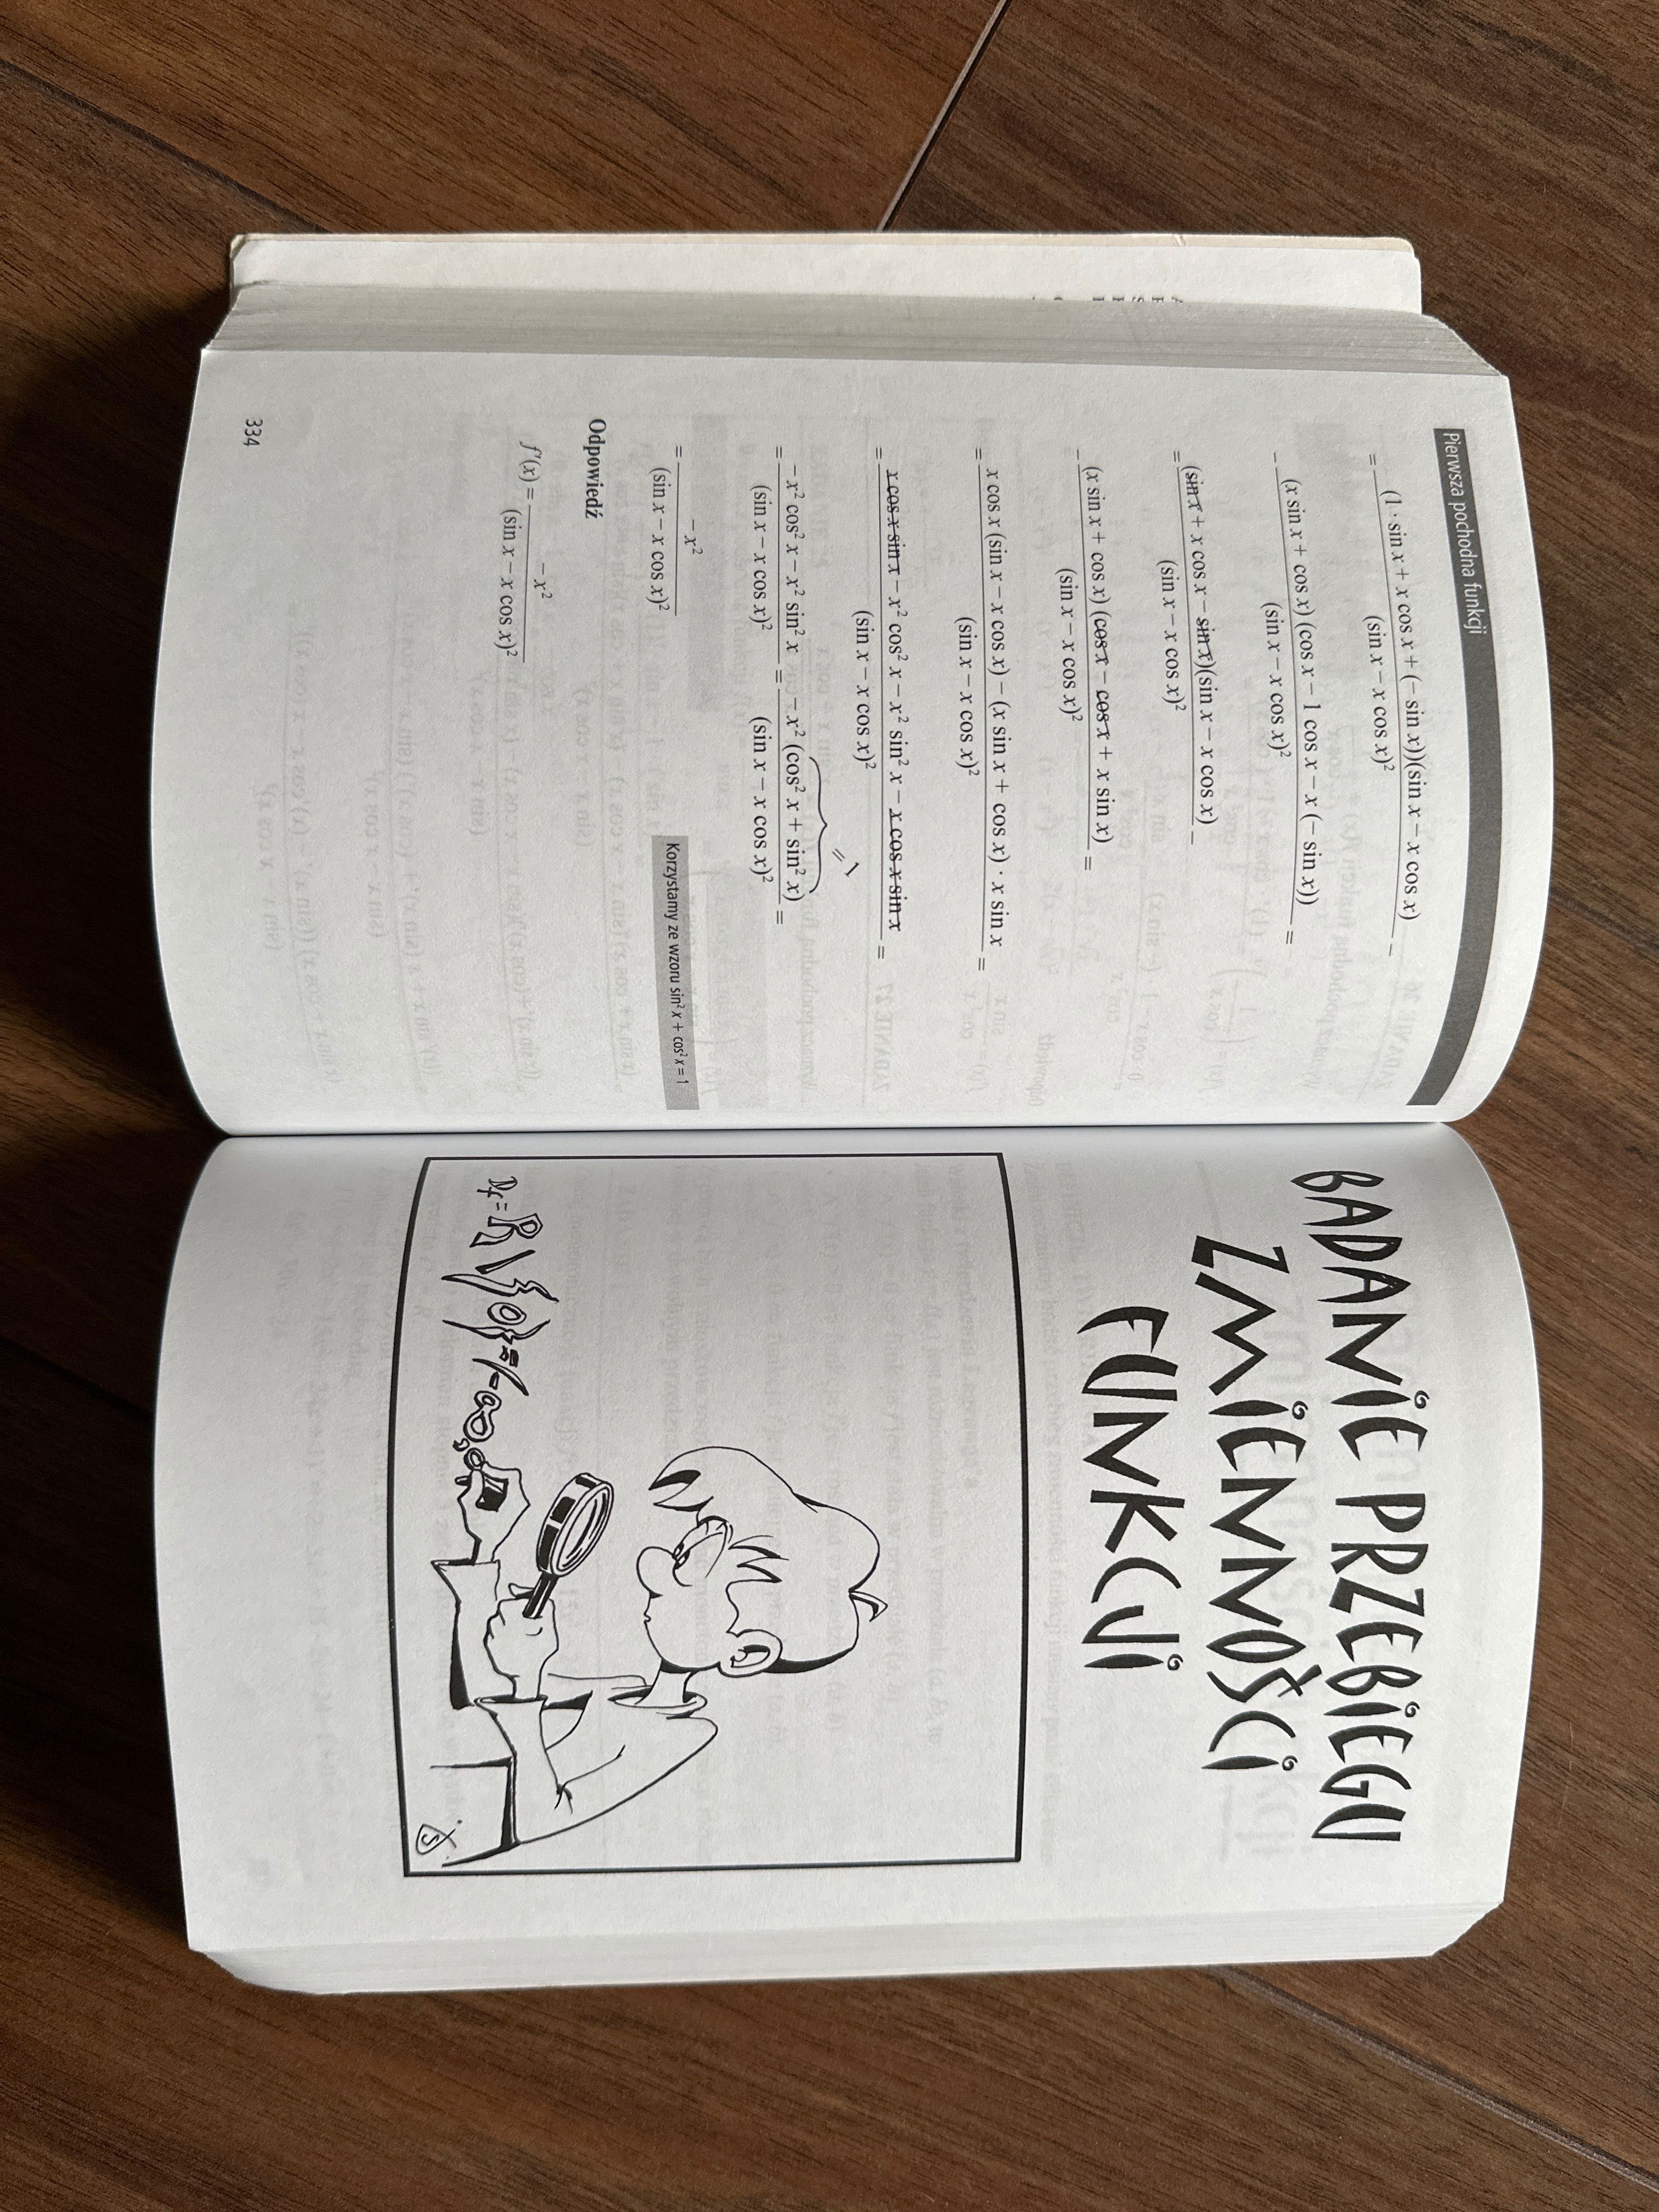 Pierwsza pochodna funkcji
= (1 · sin x + x cos x + (−sin x))(sin x − x cos x) / (sin x − x cos x)² −
− (x sin x + cos x) (cos x − 1 cos x − x (− sin x)) / (sin x − x cos x)² =
= (sin x + x cos x − sin x)(sin x − x cos x) / (sin x − x cos x)² −
− (x sin x + cos x) (cos x − cos x + x sin x) / (sin x − x cos x)² =
= x cos x (sin x − x cos x) − (x sin x + cos x) · x sin x / (sin x − x cos x)² =
= x cos x sin x − x² cos² x − x² sin² x − x cos x sin x / (sin x − x cos x)² =
= 1
= −x² cos² x − x² sin² x / (sin x − x cos x)² = −x² (cos² x + sin² x) / (sin x − x cos x)² =
= −x² / (sin x − x cos x)²
Korzystamy ze wzoru sin² x + cos² x = 1
Odpowiedź
f'(x) = −x² / (sin x − x cos x)²
334
BADANIE PRZEBIEGU
ZMIENNOŚCI
FUNKCJI
Df = R \ {0} = (−∞, 0